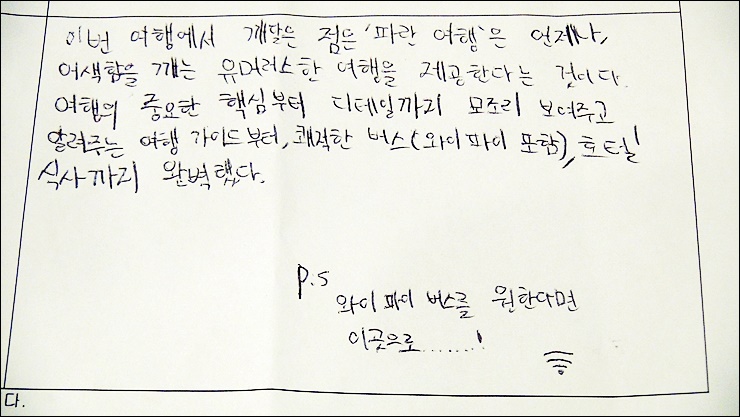 이번 여행에서 깨달은 점은 '파란 여행'은 언제나,
어색함을 깨는 유머러스한 여행을 제공한다는 것이다.
여행의 중요한 핵심부터 디테일까지 모조리 보여주고
알려주는 여행 가이드부터, 쾌적한 버스(와이파이 포함), 호텔,
식사까지 완벽했다.
P.S
와이파이 버스를 원한다면
이곳으로.......!
다.